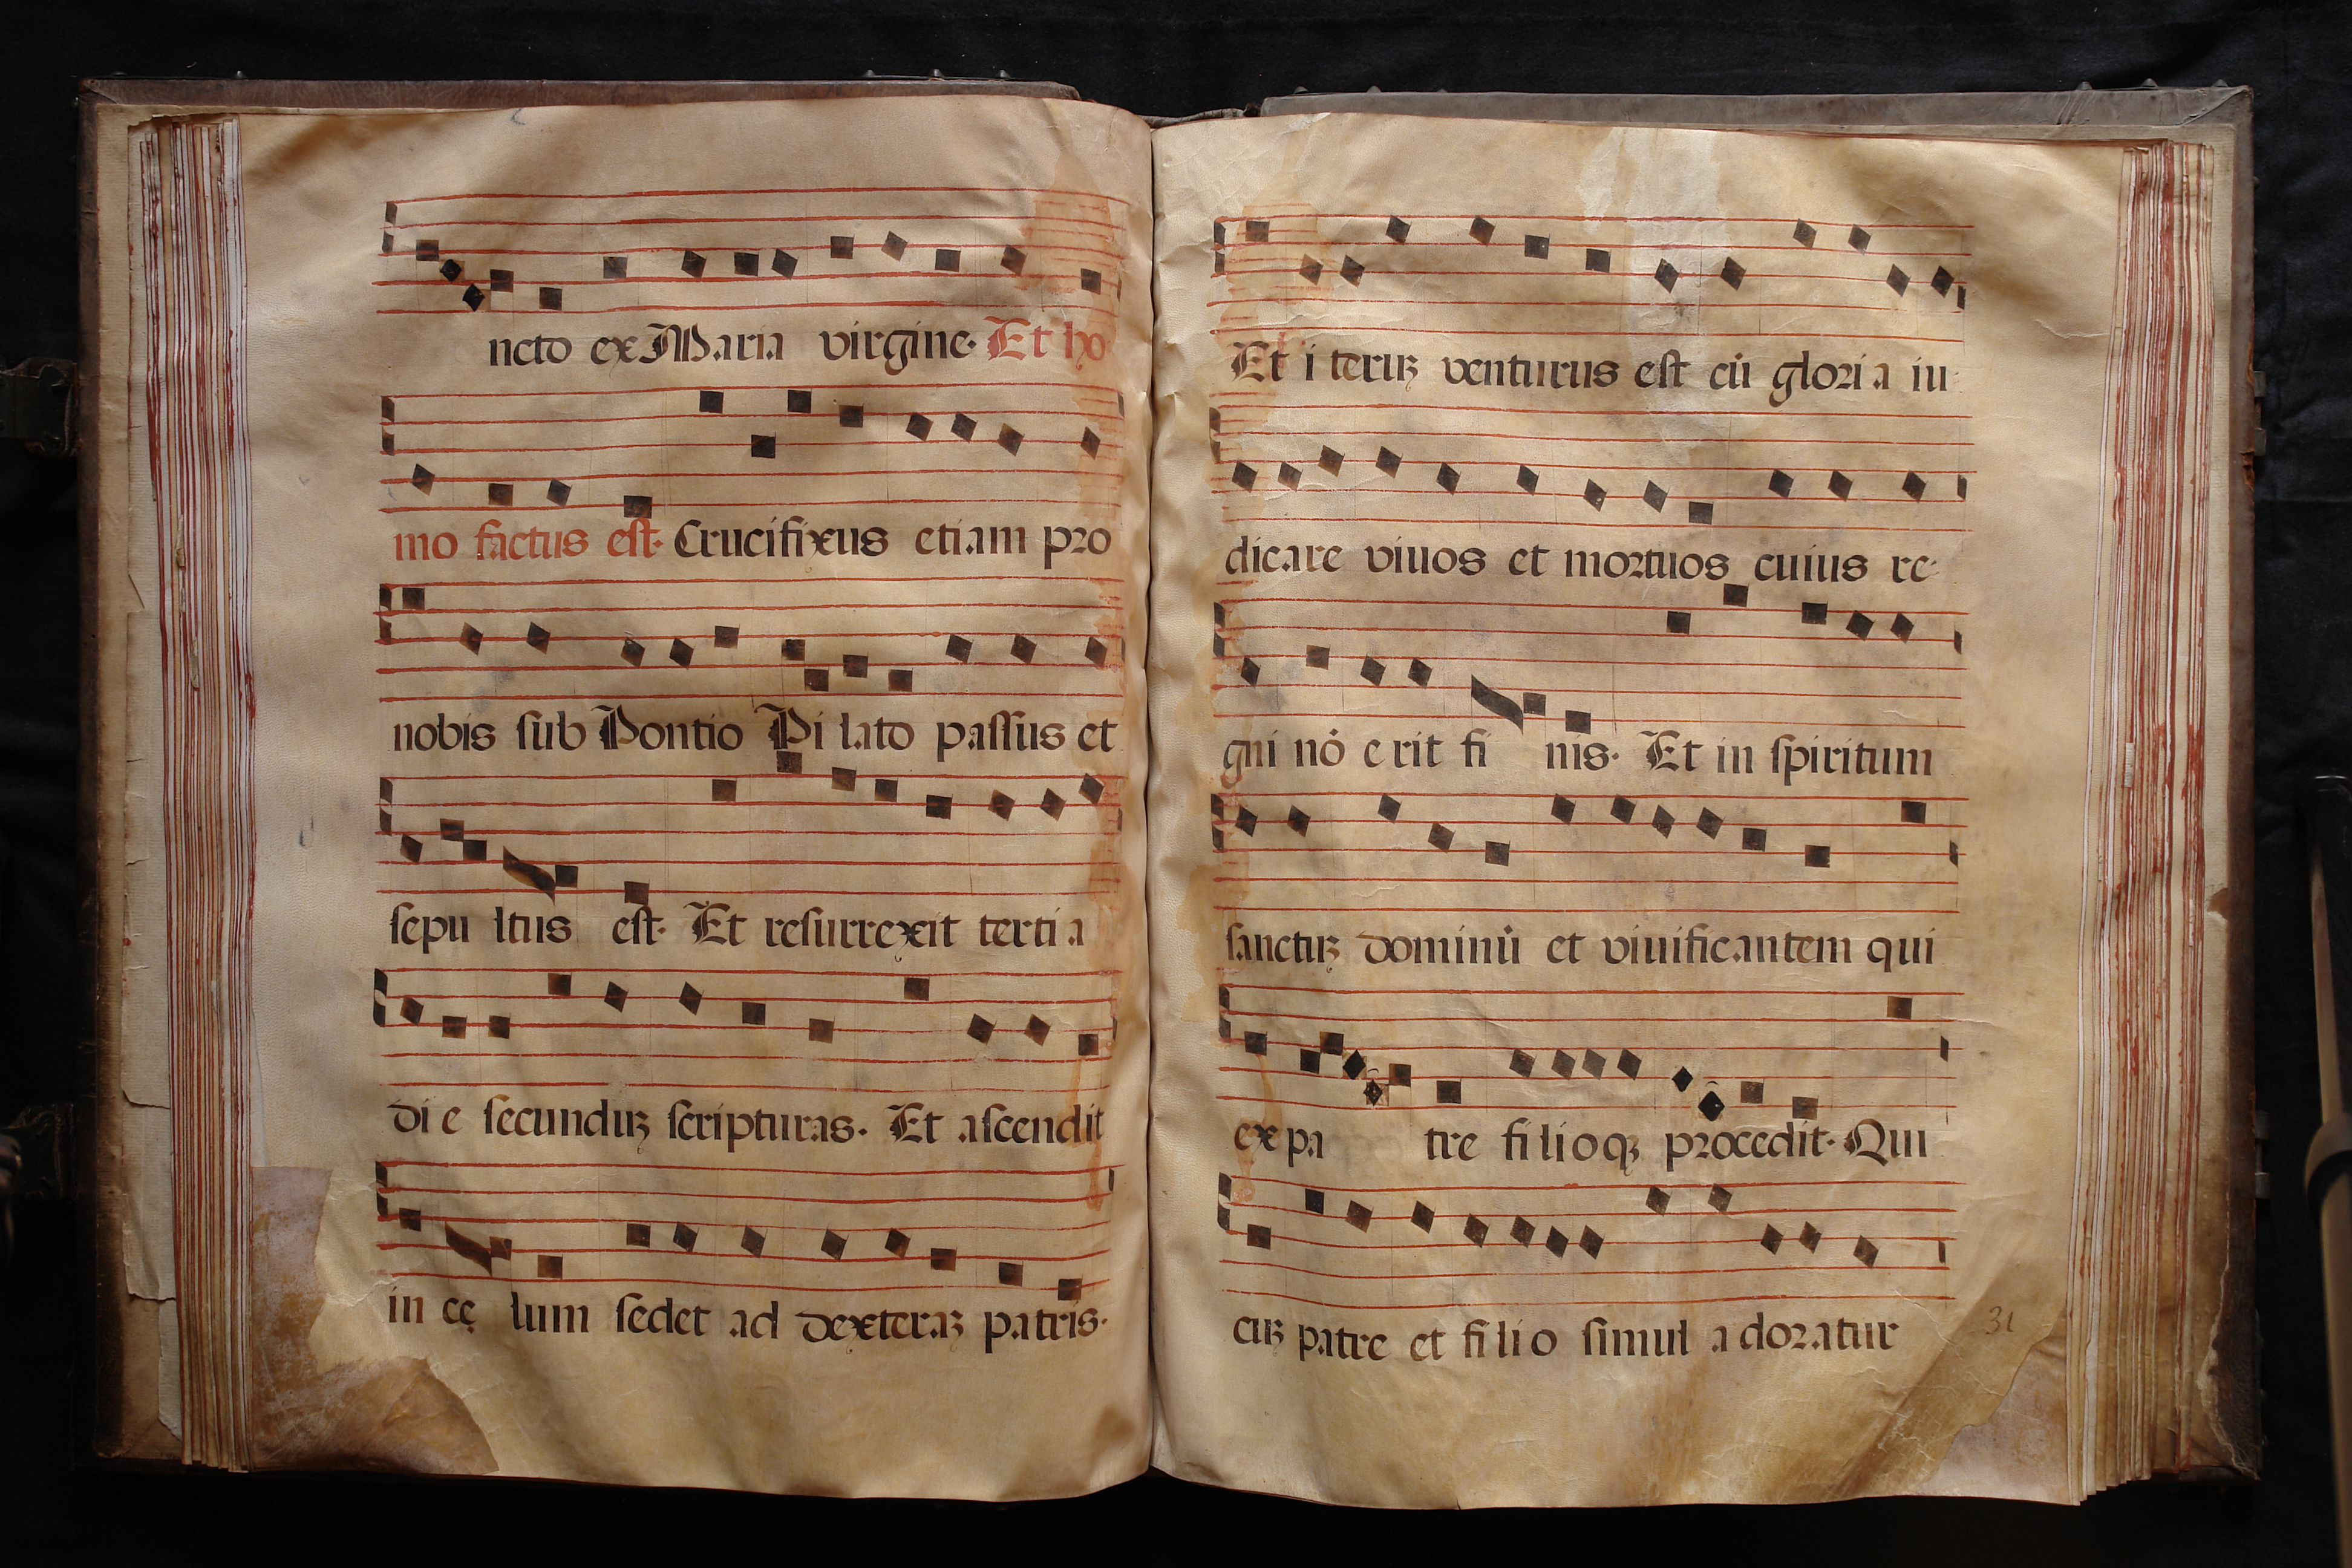 ncto ex Maria virgine. Et ho
mo factus est. Crucifixus etiam pro
nobis sub Pontio Pi lato passus et
sepu ltus est. Et resurrexit terti a
di e secunduꝫ scripturas. Et ascendit
in cę lum sedet ad dexteraꝫ patris.
Et i teruꝫ venturus est cū glori a iu
dicare viuos et mortuos cuius re
gni nō e rit fi nis. Et in spiritum
sanctuꝫ dominū et viuificantem qui
ex pa tre fi li o qꝫ procedit. Qui
cuꝫ patre et fi li o simul a doratur
31